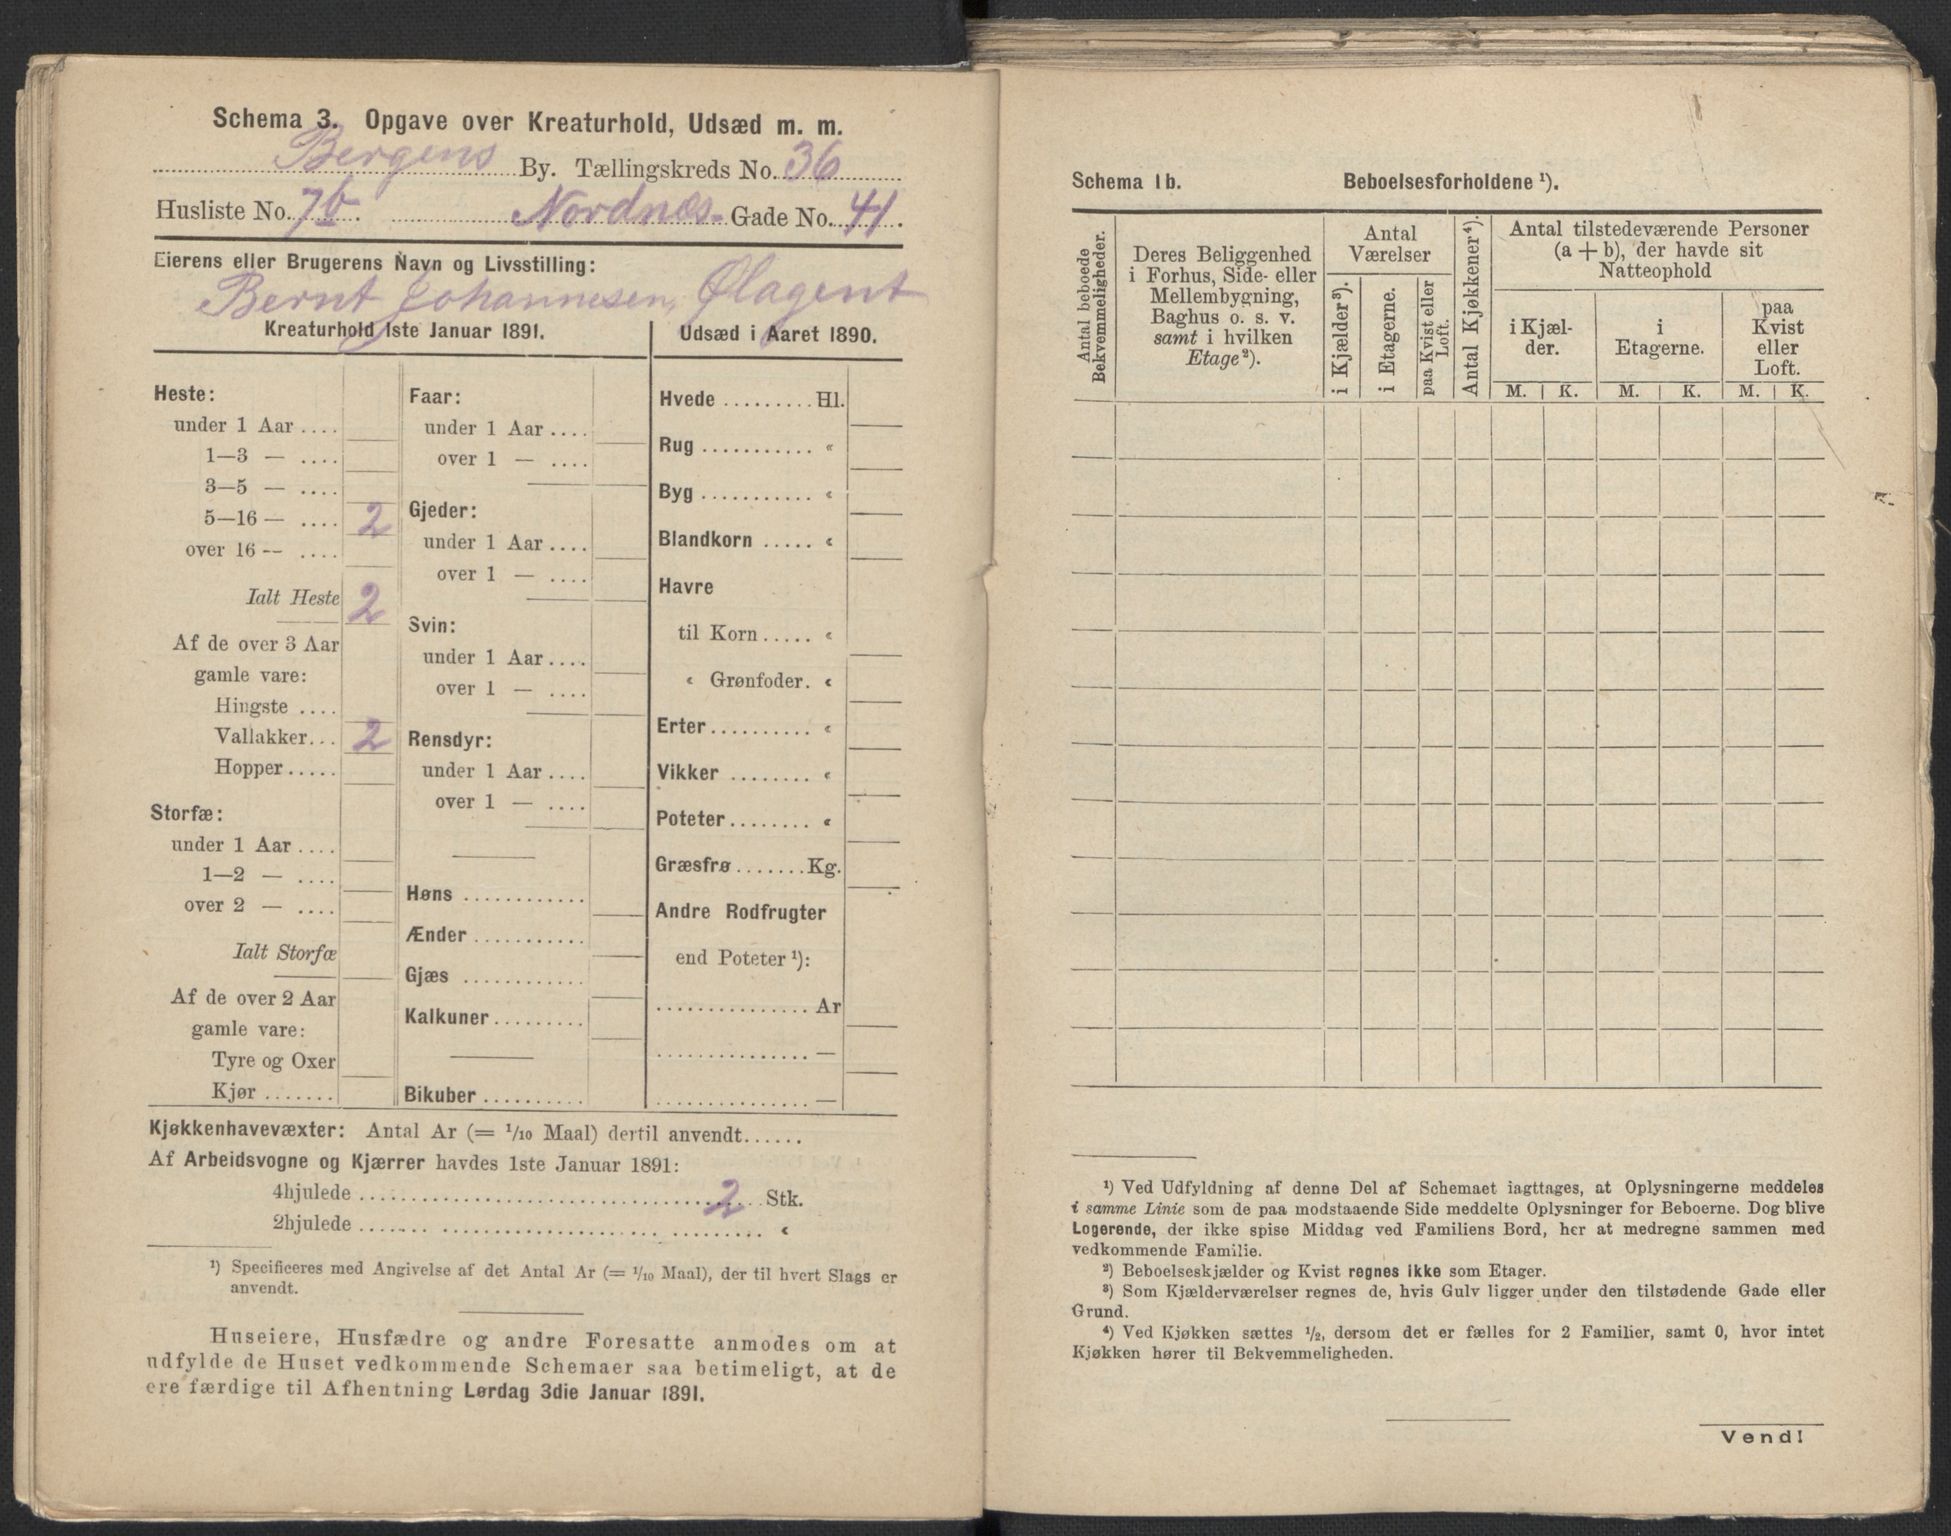 Schema 3. Opgave over Kreaturhold, Udsæd m. m.
Bergens By. Tællingskreds No. 36
Husliste No. 76. Nordnæs- Gade No. 41.
Eierens eller Brugerens Navn og Livsstilling:
Bernt Johannesen, Ølagent
Kreaturhold 1ste Januar 1891.
Heste:
under 1 Aar ....
1—3 — ....
3—5 — ....
5—16 — .... 2
over 16 — ....
Ialt Heste 2
Af de over 3 Aar
gamle vare:
Hingste ....
Vallakker... 2
Hopper.....
Storfæ:
under 1 Aar ....
1—2 — ....
over 2 — ....
Ialt Storfæ
Af de over 2 Aar
gamle vare:
Tyre og Oxer
Kjør .......
Faar:
under 1 Aar ....
over 1 — ....
Gjeder:
under 1 Aar ....
over 1 — ....
Svin:
under 1 Aar ....
over 1 — ....
Rensdyr:
under 1 Aar ....
over 1 — ....
Høns ............
Ænder ...........
Gjæs ............
Kalkuner.........
Bikuber ..........
Udsæd i Aaret 1890.
Hvede ......... Hl.
Rug ........... «
Byg ........... «
Blandkorn ..... «
Havre
til Korn ..... «
« Grønfoder. «
Erter.......... «
Vikker ........ «
Poteter........ «
Græsfrø ....... Kg.
Andre Rodfrugter
end Poteter ¹):
............... Ar
............... —
............... —
Kjøkkenhavevæxter: Antal Ar (= 1/10 Maal) dertil anvendt......
Af Arbeidsvogne og Kjærrer havdes 1ste Januar 1891:
4hjulede ........................ 2 Stk.
2hjulede ........................ «
¹) Specificeres med Angivelse af det Antal Ar (= 1/10 Maal), der til hvert Slags er
anvendt.
Huseiere, Husfædre og andre Foresatte anmodes om at
udfylde de Huset vedkommende Schemaer saa betimeligt, at de
ere færdige til Afhentning Lørdag 3die Januar 1891.
Schema 1b. Beboelsesforholdene ¹).
Antal beboede
Bekvemmeligheder.
Deres Beliggenhed
i Forhus, Side- eller
Mellembygning,
Baghus o. s. v.
samt i hvilken
Etage ²).
Antal
Værelser
i Kjælder ³).
i Etagerne.
paa Kvist eller
Loft.
Antal Kjøkkener ⁴).
Antal tilstedeværende Personer
(a + b), der havde sit
Natteophold
i Kjæl-
der.
i
Etagerne.
paa
Kvist
eller
Loft.
M. K. M. K. M. K.
¹) Ved Udfyldning af denne Del af Schemaet iagttages, at Oplysningerne meddeles
i samme Linie som de paa modstaaende Side meddelte Oplysninger for Beboerne. Dog blive
Logerende, der ikke spise Middag ved Familiens Bord, her at medregne sammen med
vedkommende Familie.
²) Beboelseskjælder og Kvist regnes ikke som Etager.
³) Som Kjælderværelser regnes de, hvis Gulv ligger under den tilstødende Gade eller
Grund.
⁴) Ved Kjøkken sættes 1/2, dersom det er fælles for 2 Familier, samt 0, hvor intet
Kjøkken hører til Bekvemmeligheden.
Vend!